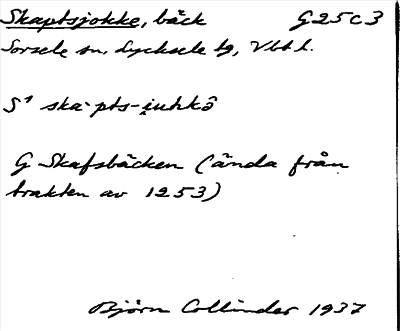 Skaptsjokke, bäck G25c3
Sorsele sn, Lycksele lg, Vbt l.
S¹ ska·pts-i̯uhkō
G Skafsbäcken (ända från
trakten av 1253)
Björn Collinder 1937